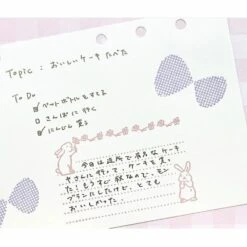 Topic : おいしいケーキ たべた
To Do
ペットボトルをすてる
さんぽに行く
にんじん買う
今日は近所で有名なケーキ
やさんに行って、ケーキを買っ
た！もうすぐ秋なので、モン
ブランにしたけど、とても
おいしかった。